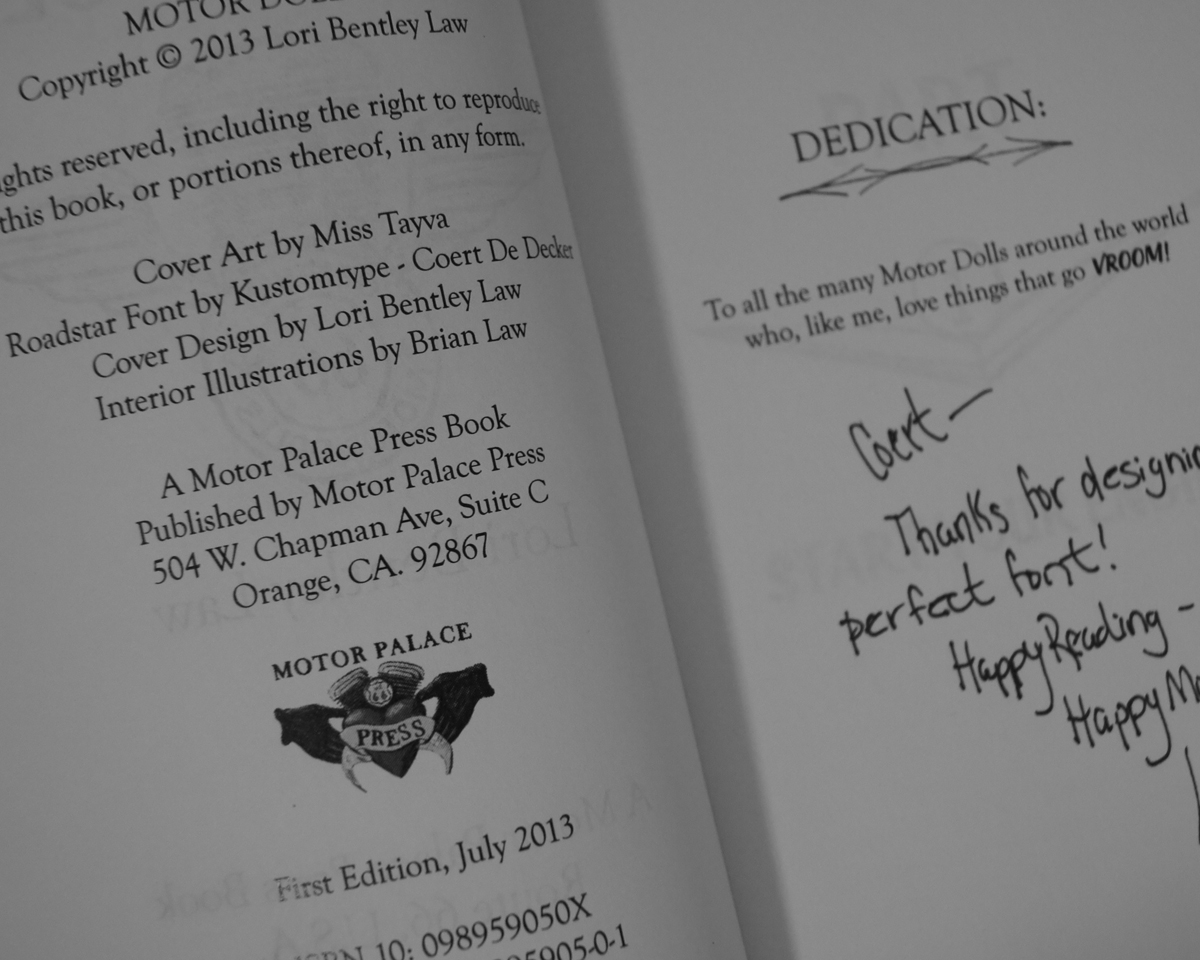 MOTOR
Copyright © 2013 Lori Bentley Law
reserved, including the right to reproduce
this book, or portions thereof, in any form.
Cover Art by Miss Tayva
Roadstar Font by Kustomtype - Coert De Decker
Cover Design by Lori Bentley Law
Interior Illustrations by Brian Law
A Motor Palace Press Book
Published by Motor Palace Press
504 W. Chapman Ave, Suite C
Orange, CA. 92867
MOTOR PALACE
66
PRESS
First Edition, July 2013
10: 098959050X
5905-0-1
DEDICATION:
To all the many Motor Dolls around the world
who, like me, love things that go VROOM!
Coert —
Thanks for
perfect font!
Happy Reading -
Happy